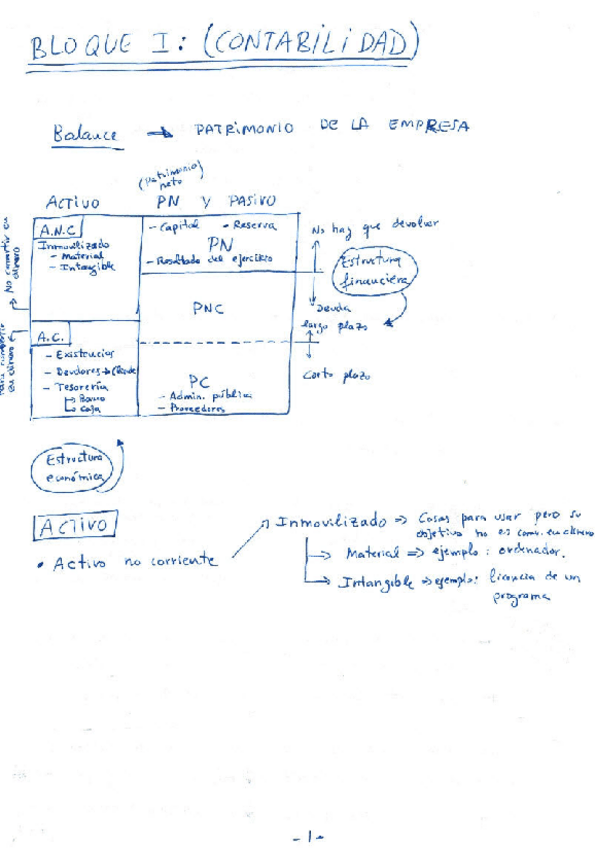 BLOQUE I: (CONTABILIDAD)
Balance → PATRIMONIO DE LA EMPRESA
(Patrimonio neto)
ACTIVO PN Y PASIVO
A.N.C
Inmovilizado
- Material
- Intangible
→ No convertir en dinero
- Capital - Reserva
PN
- Resultado del ejercicio
No hay que devolver
Estructura financiera
PNC
Deuda
largo plazo
A.C.
- Existencias
- Deudores →
- Tesorería
→ Banco
→ Caja
para convertir
en dinero
PC
- Admin. pública
- Proveedores
Corto plazo
Estructura
económica
ACTIVO
• Activo no corriente
Inmovilizado => Cosas para usar pero su
objetivo no es conv. en dinero
→ Material => ejemplo: ordenador.
→ Intangible => ejemplo: licencia de un
programa
- 1 -